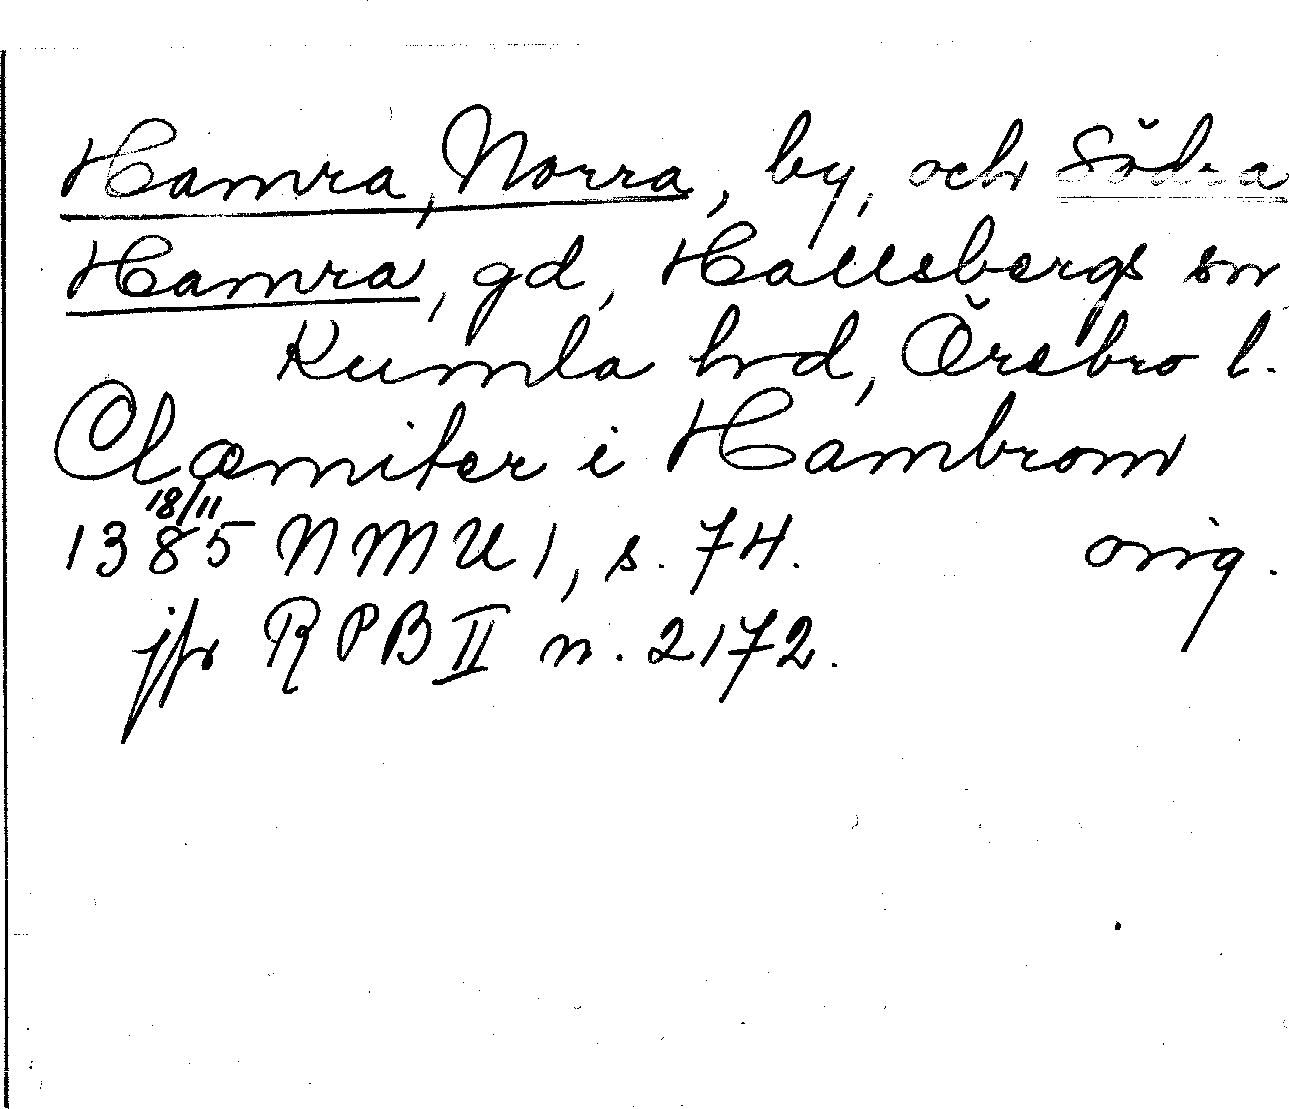 Hamra, Norra, by, och Södra
Hamra, gd, Hallsbergs sn
Kumla hrd, Örebro l.
Clæmiter i Hambrom
18/11
1385 NMU 1, s. 74. orig.
jfr RPB II n. 2172.